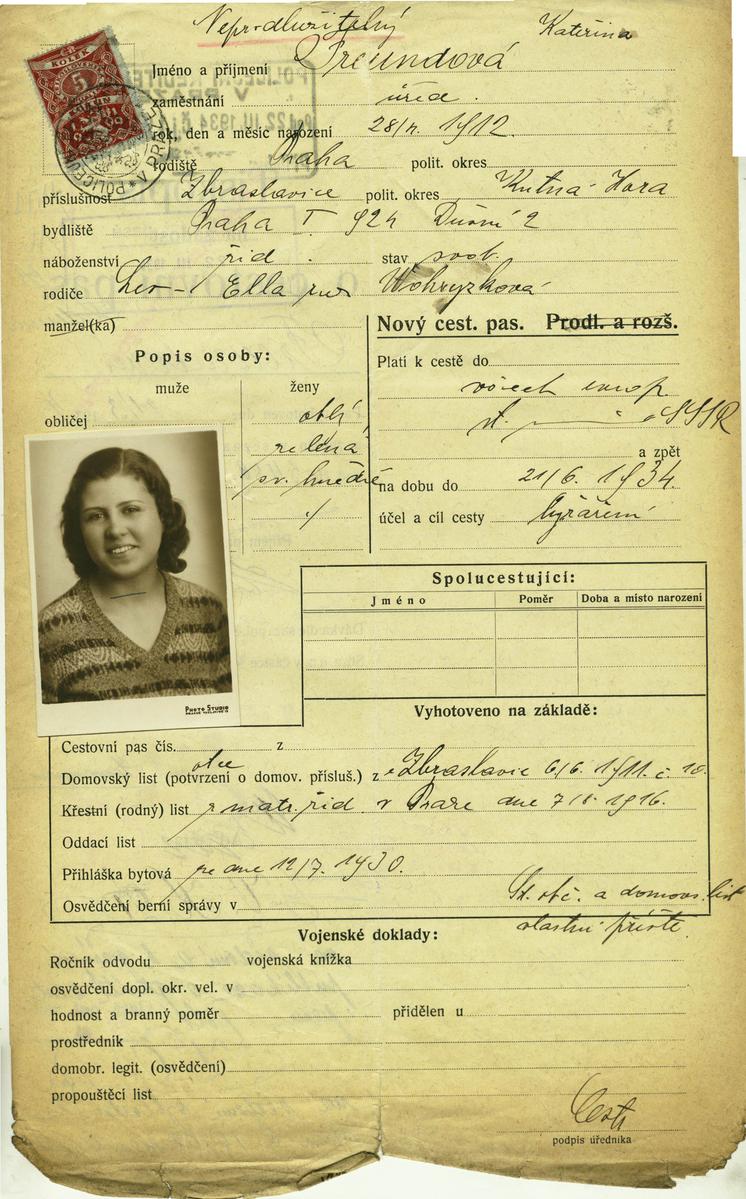 Neprodlužitelný
Kateřina
Jméno a příjmení Freundová
zaměstnání úřed.
rok, den a měsíc narození 28/ 1912.
rodiště Praha polit. okres
příslušnost Zbraslavice polit. okres Kutná Hora
bydliště Praha I 924 Dušní 2
náboženství žid. stav svob.
rodiče Leo - Ella roz Wohryzková
manžel(ka)
Nový cest. pas. Prodl. a rozš.
Popis osoby:
muže ženy
obličej oblý
zelená
sv. hnědé
Platí k cestě do
všech evrop.
st. SSSR
a zpět
na dobu do 21/6. 1934.
účel a cíl cesty
Spolucestující:
Jméno Poměr Doba a místo narození
PHOTO STUDIO
Vyhotoveno na základě:
Cestovní pas čís. z
otce
Domovský list (potvrzení o domov. přísluš.) z Zbraslavic 6/6. 1911. č. 10.
Křestní (rodný) list z matr. žid. v Praze dne 1916.
Oddací list
Přihláška bytová ze dne 12/7. 1930.
Osvědčení berní správy v
St. obč. a domovs. list
vlastní příště.
Vojenské doklady:
Ročník odvodu vojenská knížka
osvědčení dopl. okr. vel. v
hodnost a branný poměr přidělen u
prostředník
domobr. legit. (osvědčení)
propouštěcí list
podpis úředníka